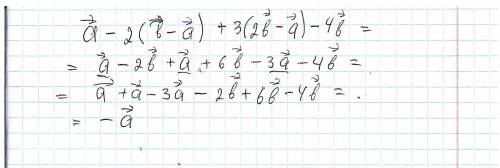 a⃗ - 2(b⃗ - a⃗) + 3(2b⃗ - a⃗) - 4b⃗ =
= a⃗ - 2b⃗ + a⃗ + 6b⃗ - 3a⃗ - 4b⃗ =
= a⃗ + a⃗ - 3a⃗ - 2b⃗ + 6b⃗ - 4b⃗ = .
= - a⃗